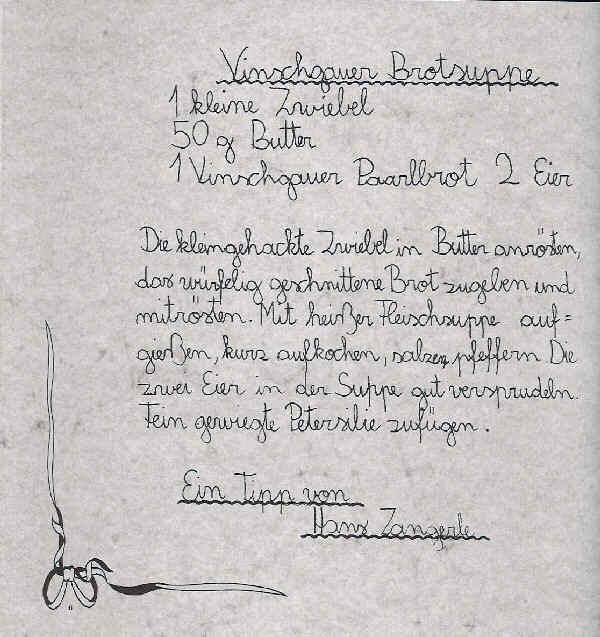 Vinschgauer Brotsuppe
1 kleine Zwiebel
50 g Butter
1 Vinschgauer Paarlbrot 2 Eier
Die kleingehackte Zwiebel in Butter anrösten,
das würfelig geschnittene Brot zugeben und
mitrösten. Mit heißer Fleischsuppe auf=
gießen, kurz aufkochen, salzen, pfeffern Die
zwei Eier in der Suppe gut versprudeln.
Fein gewiegte Petersilie zufügen.
Ein Tipp von
Hans Zangerle